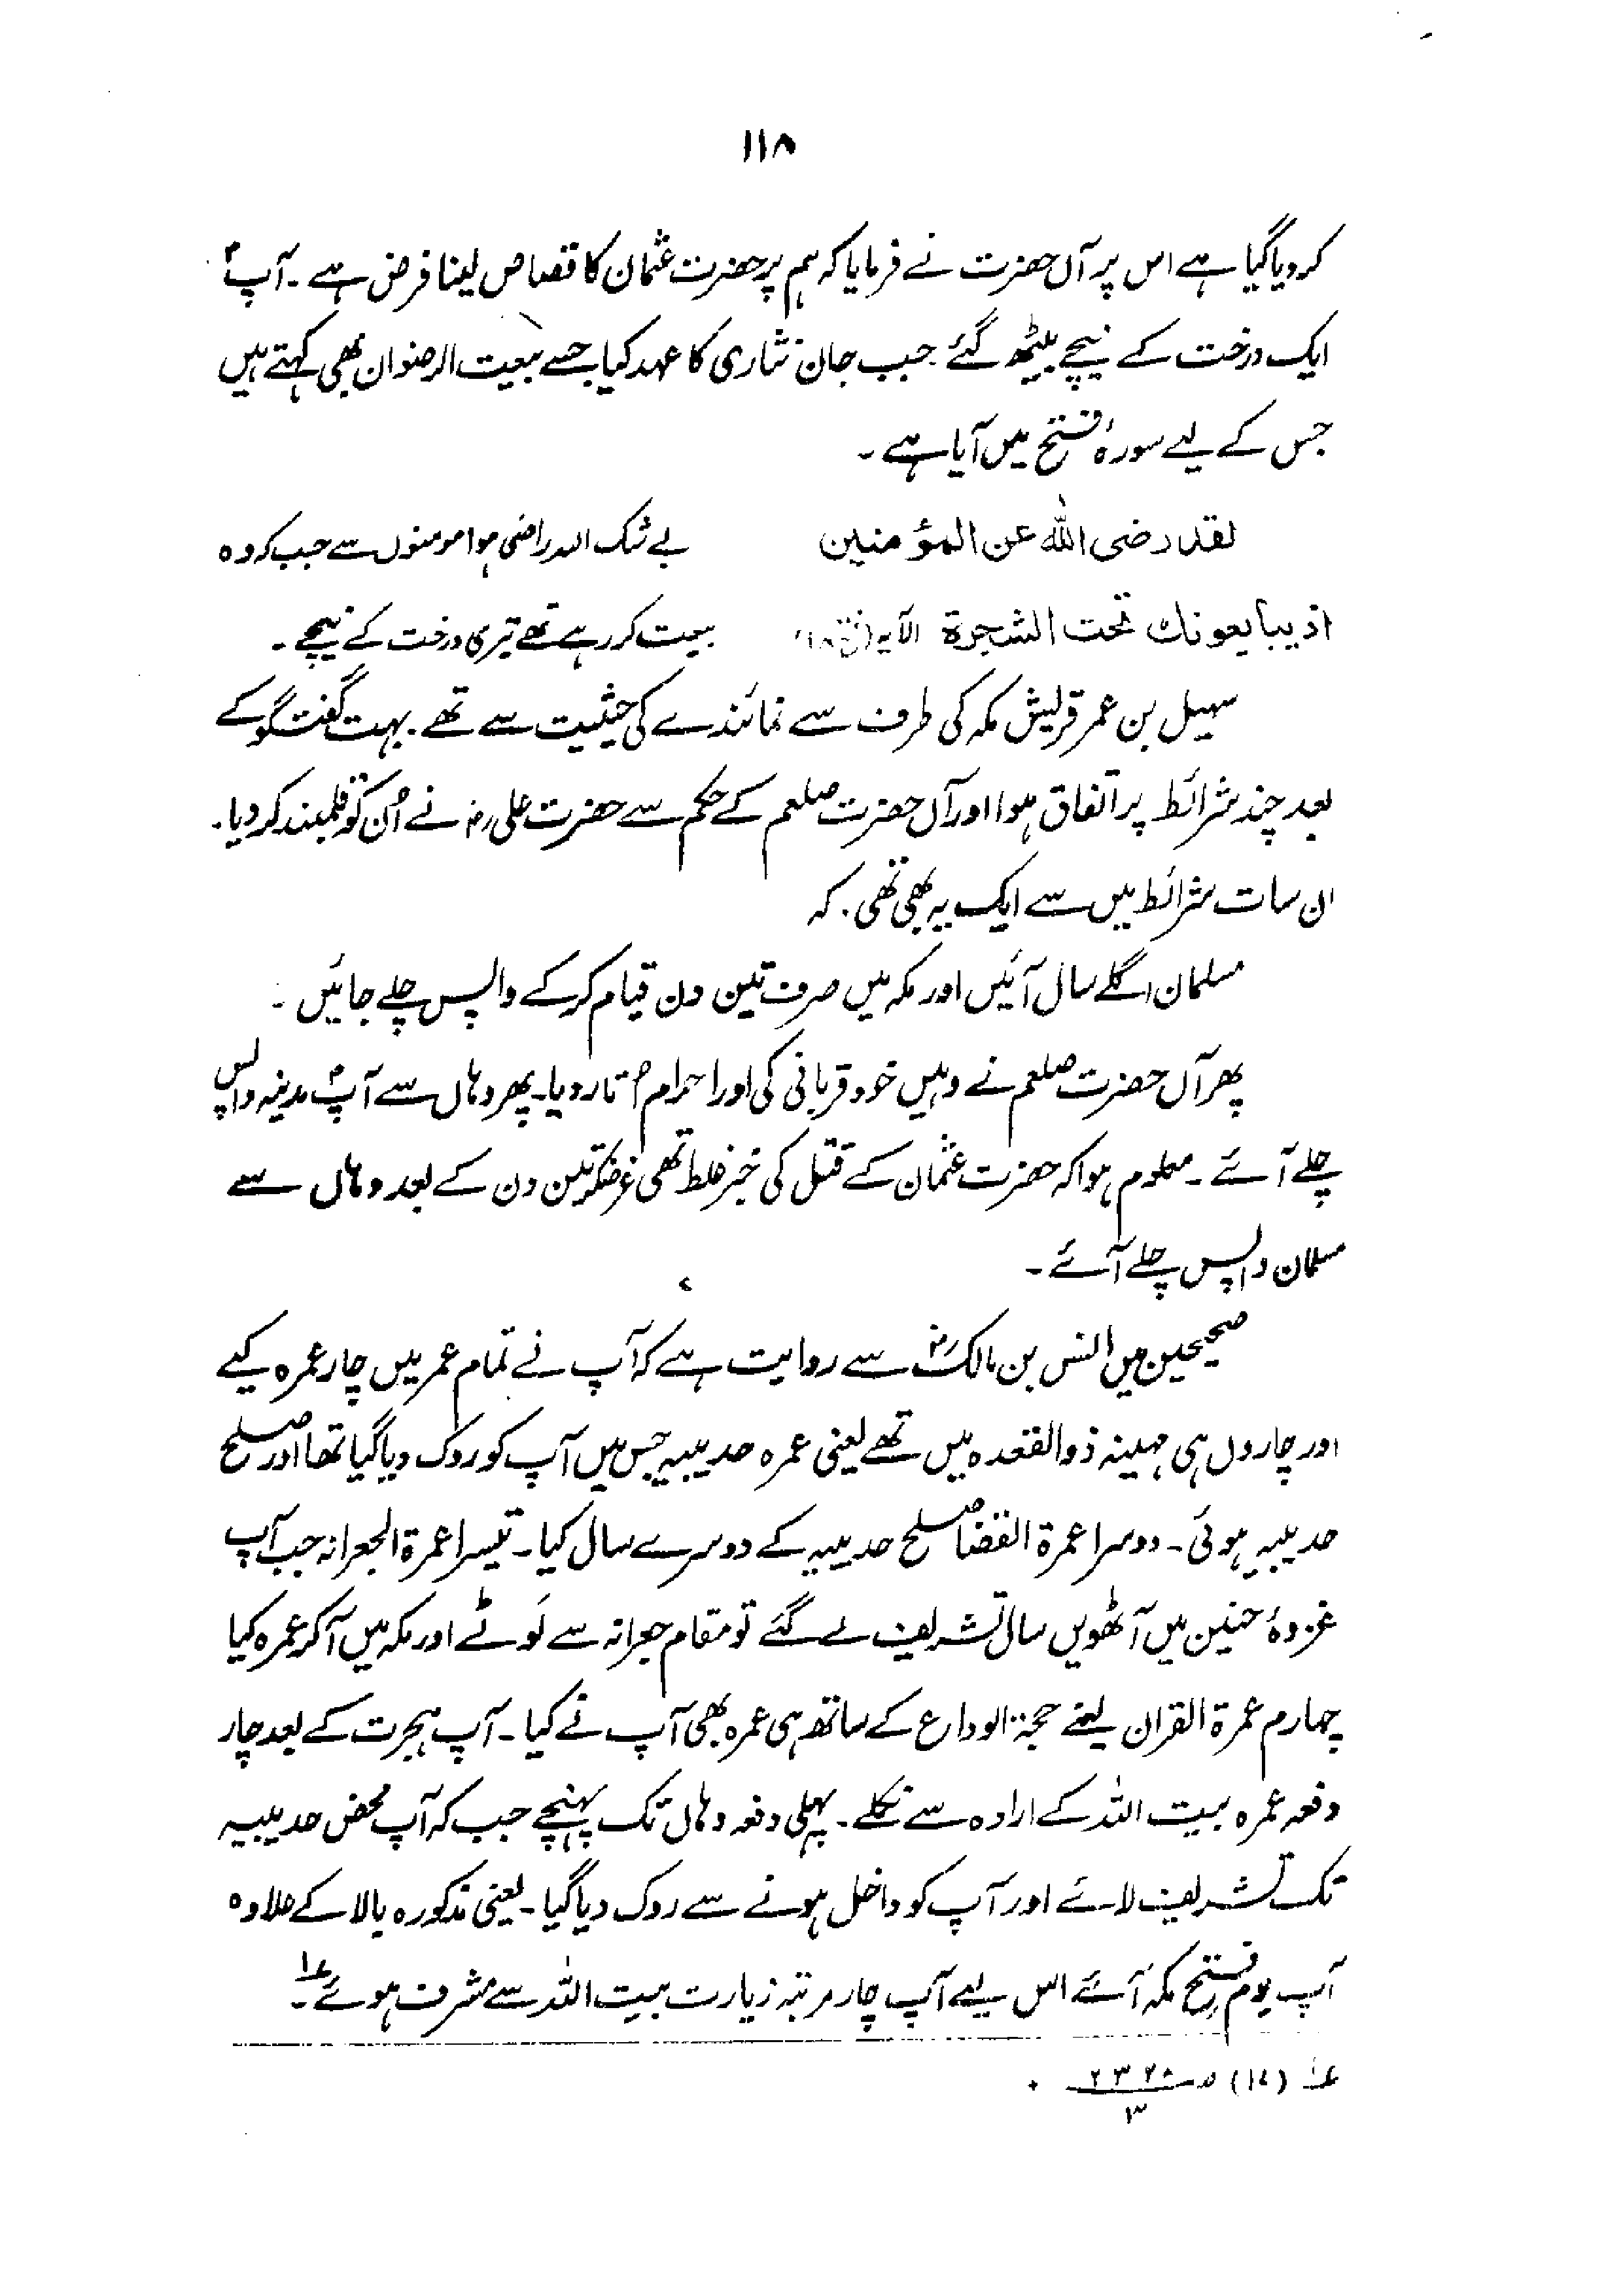 ۱۱۸
کر دیا گیا ہے اس پر آں حضرت نے فرمایا کہ ہم پر حضرت عثمان کا قصاص لینا فرض ہے ۔ آپؐ
ایک درخت کے نیچے بیٹھ گئے جب جان نثاری کا عہد کیا جسے بیعت الرضوان بھی کہتے ہیں
جس کے لیے سورۂ فتح میں آیا ہے ۔
لقد رضی اللہ عن المؤمنین
بے شک اللہ راضی ہوا مومنوں سے جب کہ وہ
اذ یبایعونك تحت الشجرة الآیہ (فتح ۱۸)
بیعت کر رہے تھے تیری درخت کے نیچے ۔
سہیل بن عمر قریش مکہ کی طرف سے نمائندے کی حیثیت سے تھے ۔ بہت گفتگو کے
بعد چند شرائط پر اتفاق ہوا اور آں حضرت صلعم کے حکم سے حضرت علی رض نے اُن کو قلمبند کر دیا ۔
ان سات شرائط میں سے ایک یہ بھی تھی ۔ کہ
مسلمان اگلے سال آئیں اور مکہ میں صرف تین دن قیام کر کے واپس چلے جائیں ۔
پھر آں حضرت صلعم نے وہیں خود قربانی کی اور احرام اُتار دیا ۔ پھر وہاں سے آپؐ مدینہ واپس
چلے آئے ۔ معلوم ہوا کہ حضرت عثمان کے قتل کی خبر غلط تھی غرضکہ تین دن کے بعد وہاں سے
مسلمان واپس چلے آئے ۔
صحیحین میں انس بن مالکؓ سے روایت ہے کہ آپ نے تمام عمر میں چار عمرہ کیے
اور چاروں ہی مہینہ ذوالقعدہ میں تھے یعنی عمرہ حدیبیہ جس میں آپ کو روک دیا گیا تھا اور صلح
حدیبیہ ہوئی ۔ دوسرا عمرة القضا صلح حدیبیہ کے دوسرے سال کیا ۔ تیسرا عمرة الجعرانہ جب آپ
غزوۂ حنین میں آٹھویں سال تشریف لے گئے تو مقام جعرانہ سے لَوٹے اور مکہ میں آ کر عمرہ کیا
چہارم عمرة القران یعنے حجۃ الوداع کے ساتھ ہی عمرہ بھی آپ نے کیا ۔ آپ ہجرت کے بعد چار
دفعہ عمرہ بیت اللہ کے ارادہ سے نکلے ۔ پہلی دفعہ وہاں تک پہنچے جب کہ آپ محض حدیبیہ
تک تشریف لائے اور آپ کو داخل ہونے سے روک دیا گیا ۔ یعنی مذکورہ بالا کے علاوہ
آپ یوم فتح مکہ آئے اس لیے آپ چار مرتبہ زیارت بیت اللہ سے مشرف ہوئے ۔ ؏۱
؏۱ (۱۷) ص
۳